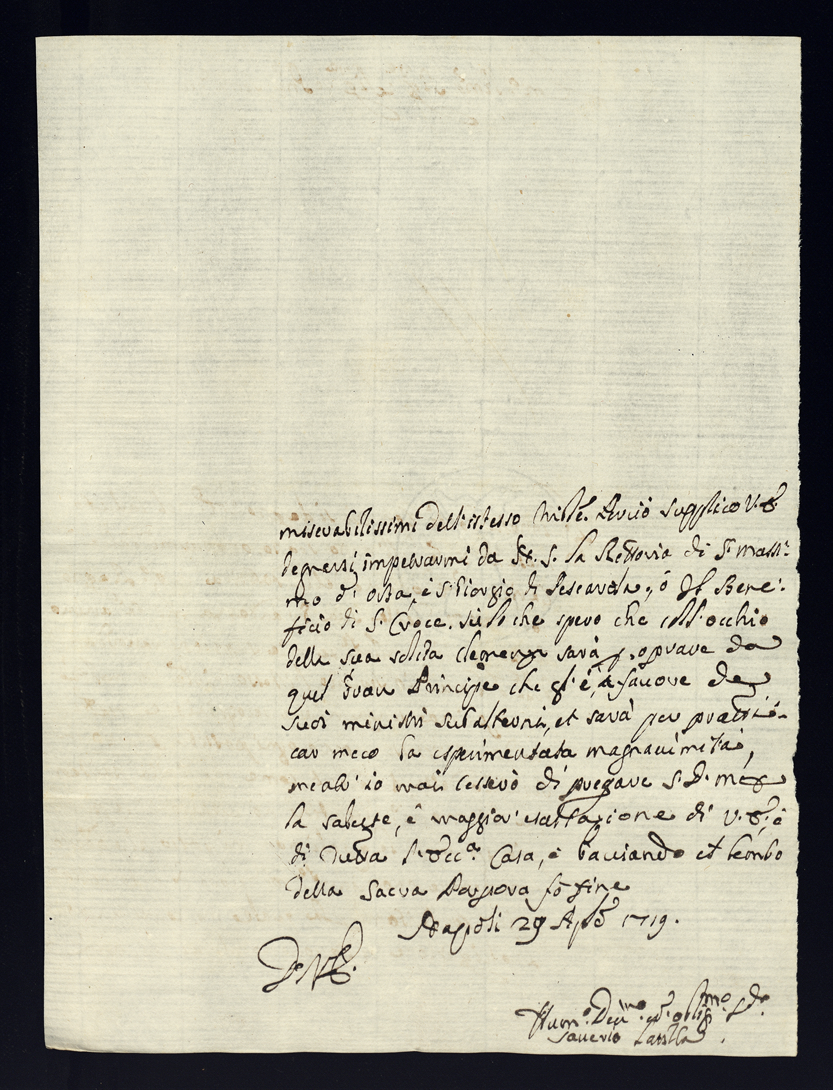 miserabilissimi dell'istesso supplico V. E.
degnersi impetrarmi da N. S. la Rettoria di S. Massi:
mo d' Orta, è S. Giorgio di Pescarola, ò il Bene:
ficio di S. Croce. Su lo che spero che coll'occhio
della sua solita clemenza sarà p. oprare da
quel Gran Principe che gl'è, à favore de
suoi ministri subalterni, et sarà per prati:
car meco la esperimentata magnanimità,
mentr' io mai cesserò di pregare S. D. M.
la salute, è maggior esaltazione di V. E. è
di tutta l'Ecc.a Casa, è baciando il lembo
della Sacra Porpora fò fine
Napoli 29 1719.
D. V. E.
Hum.o Dev.mo ed oblig.mo
Saverio